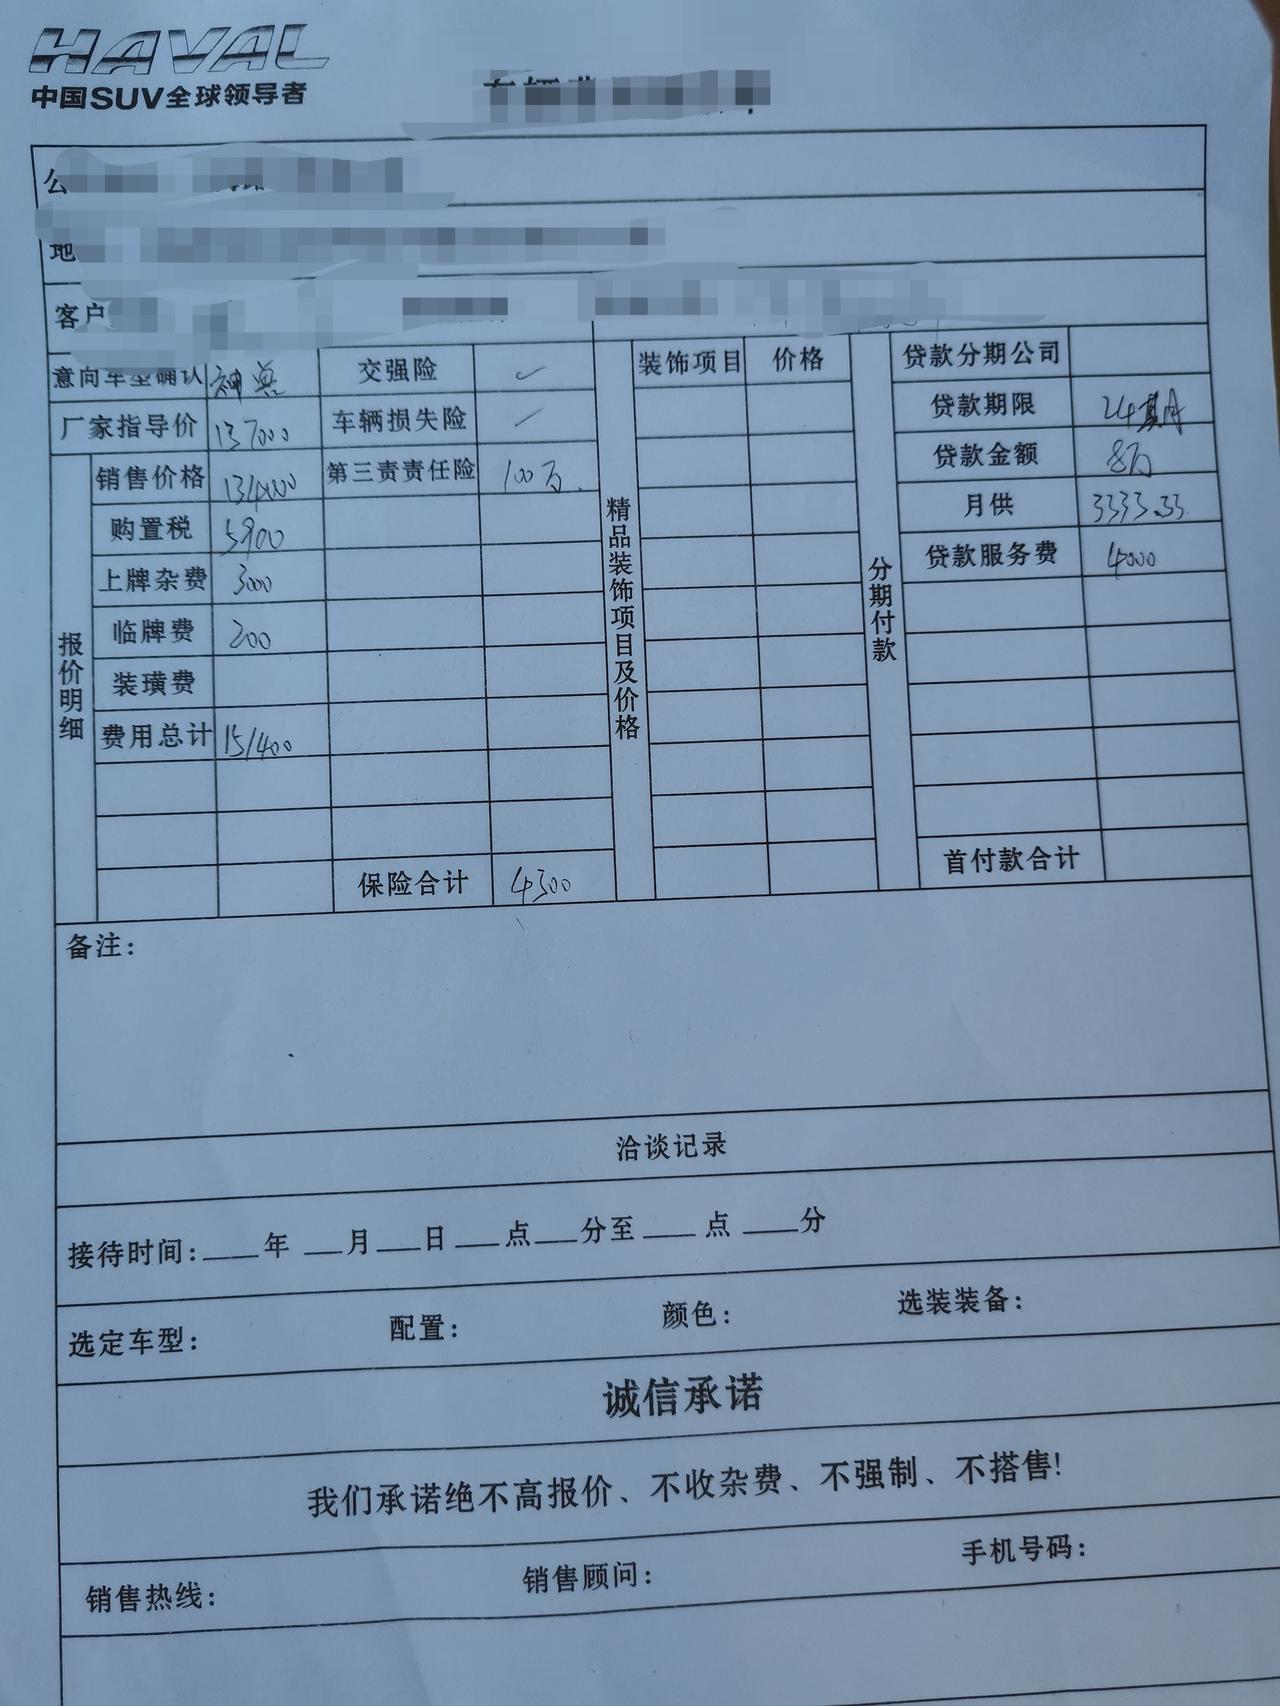 HAVAL
中国SUV全球领导者
公
地
客户
意向车型确认 神兽 交强险 ✓ 装饰项目 价格 贷款分期公司
厂家指导价 137000 车辆损失险 ✓ 贷款期限 24期
销售价格 134000 第三责责任险 100万 贷款金额 8万
购置税 5900 月供 3333.33
上牌杂费 3000 贷款服务费 4000
临牌费 200
装璜费
费用总计 151400
报价明细
精品装饰项目及价格
分期付款
保险合计 4300 首付款合计
备注:
洽谈记录
接待时间:____年 ___月___日 ___点___分至 ____ 点 ____分
选定车型: 配置: 颜色: 选装装备:
诚信承诺
我们承诺绝不高报价、不收杂费、不强制、不搭售!
销售热线: 销售顾问: 手机号码: